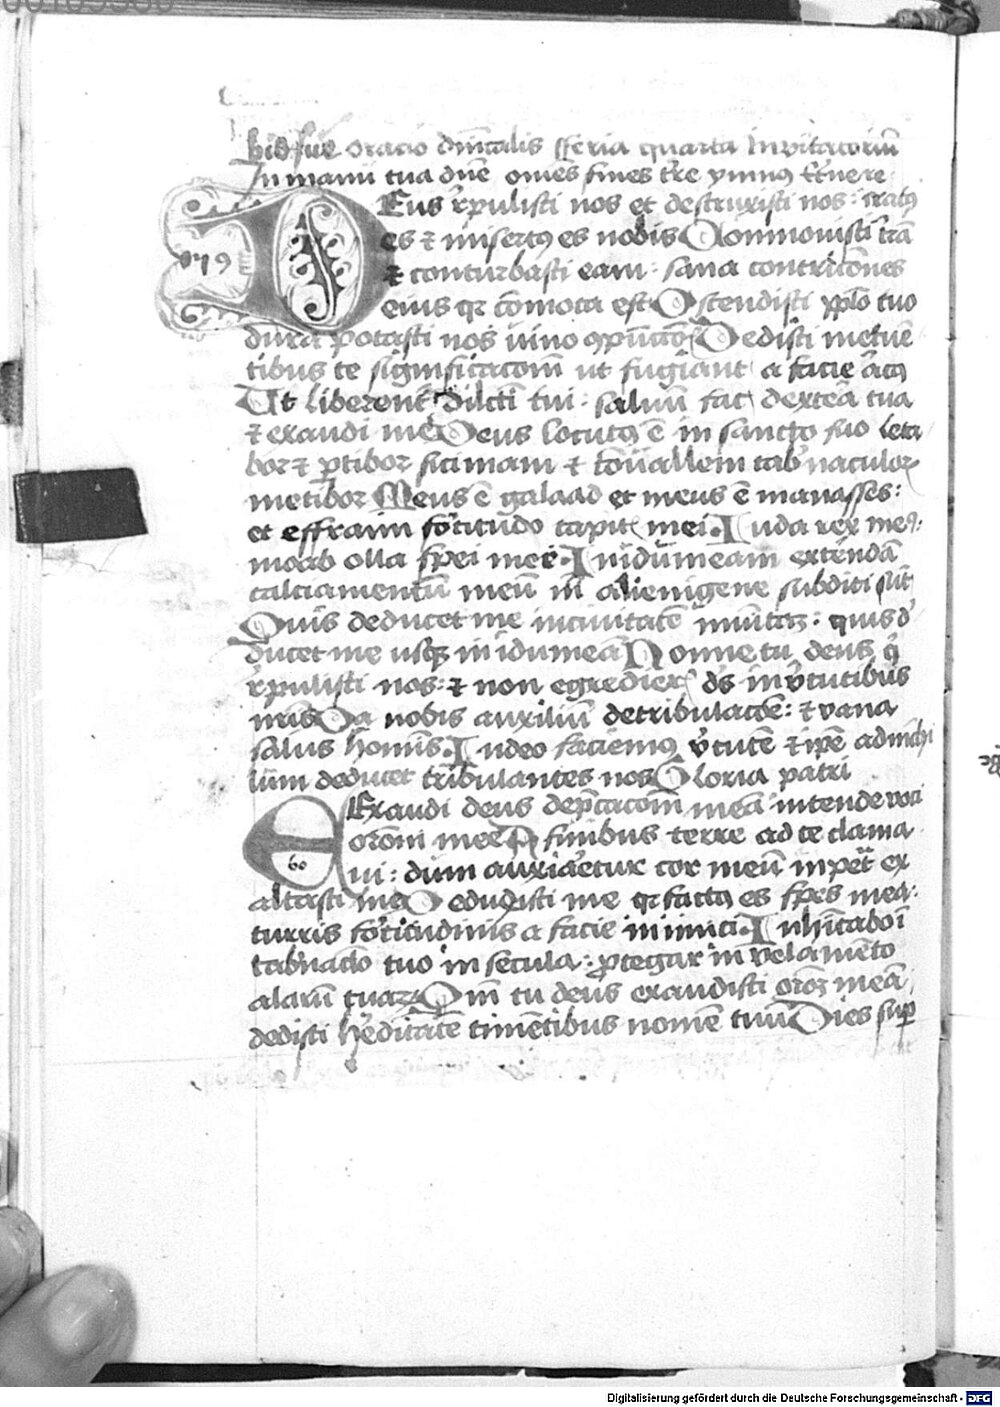 oracio dn̄icalis fferia quarta Inuitatoriū
In manu tua dn̄e om̄es fines tr̄e ymnus
Eus r̄pulisti nos et destruxisti nos : iratꝰ
es ⁊ misertꝰ es nobis Conmouisti trā
1791
⁊ conturbasti eam : sana contriciones
eius qr cōmota est Ostendisti pplo tuo
dura potasti nos uino Dedisti metue
tibus te significacom̄ ut fugiant a facie arcꝰ
Ut liberent᷑ dilcti tui : saluū fac dexteā tua
⁊ exaudi me Deus locutꝰ ē in sancto suo leta
bor ⁊ ꝑtibor sicimam ⁊ cōuallem tab̄naculoꝝ
metibor Meus ē galaad et meus ē manasses :
et effraim fōrtitudo capit mei Iuda rex me9 :
moab olla spei mee In idumeam extendā
calciamentū meū m alienigene subditi sūt
Quis deducet me inciuitatē mūitaꝫ : quis d̄
ducet me usqꝫ in idumeā Nonne tu deus q̄
r̄pulisti nos : ⁊ non egredier᷑ ds̄ in v̄tutibus
nr̄is Da nobis auxiliū detribulacōe : ⁊ vana
salus homīs In deo faciemꝰ v̄tutē ⁊ ipē adnichi
lum deducet tribulantes nos Gloria patri
Exaudi deus dep̄cacom̄ meā intende voci
orōni mee A finibus terre ad te clama
60
ui : dum anxiaretur cor meū inpet̄ ex
altasti me Deduxisti me qr factꝰ es spes mea :
turris fōrtitudinis a facie inimici Inhītabo ī
tab̄naclo tuo in secula : ꝓtegar in velamēto
alarū tuaꝝ Qm̄ tu deus exaudisti orōꝫ meā
dedisti h̄editatē timētibus nomē tuū Dies suꝑ
Digitalisierung gefördert durch die Deutsche Forschungsgemeinschaft - DFG